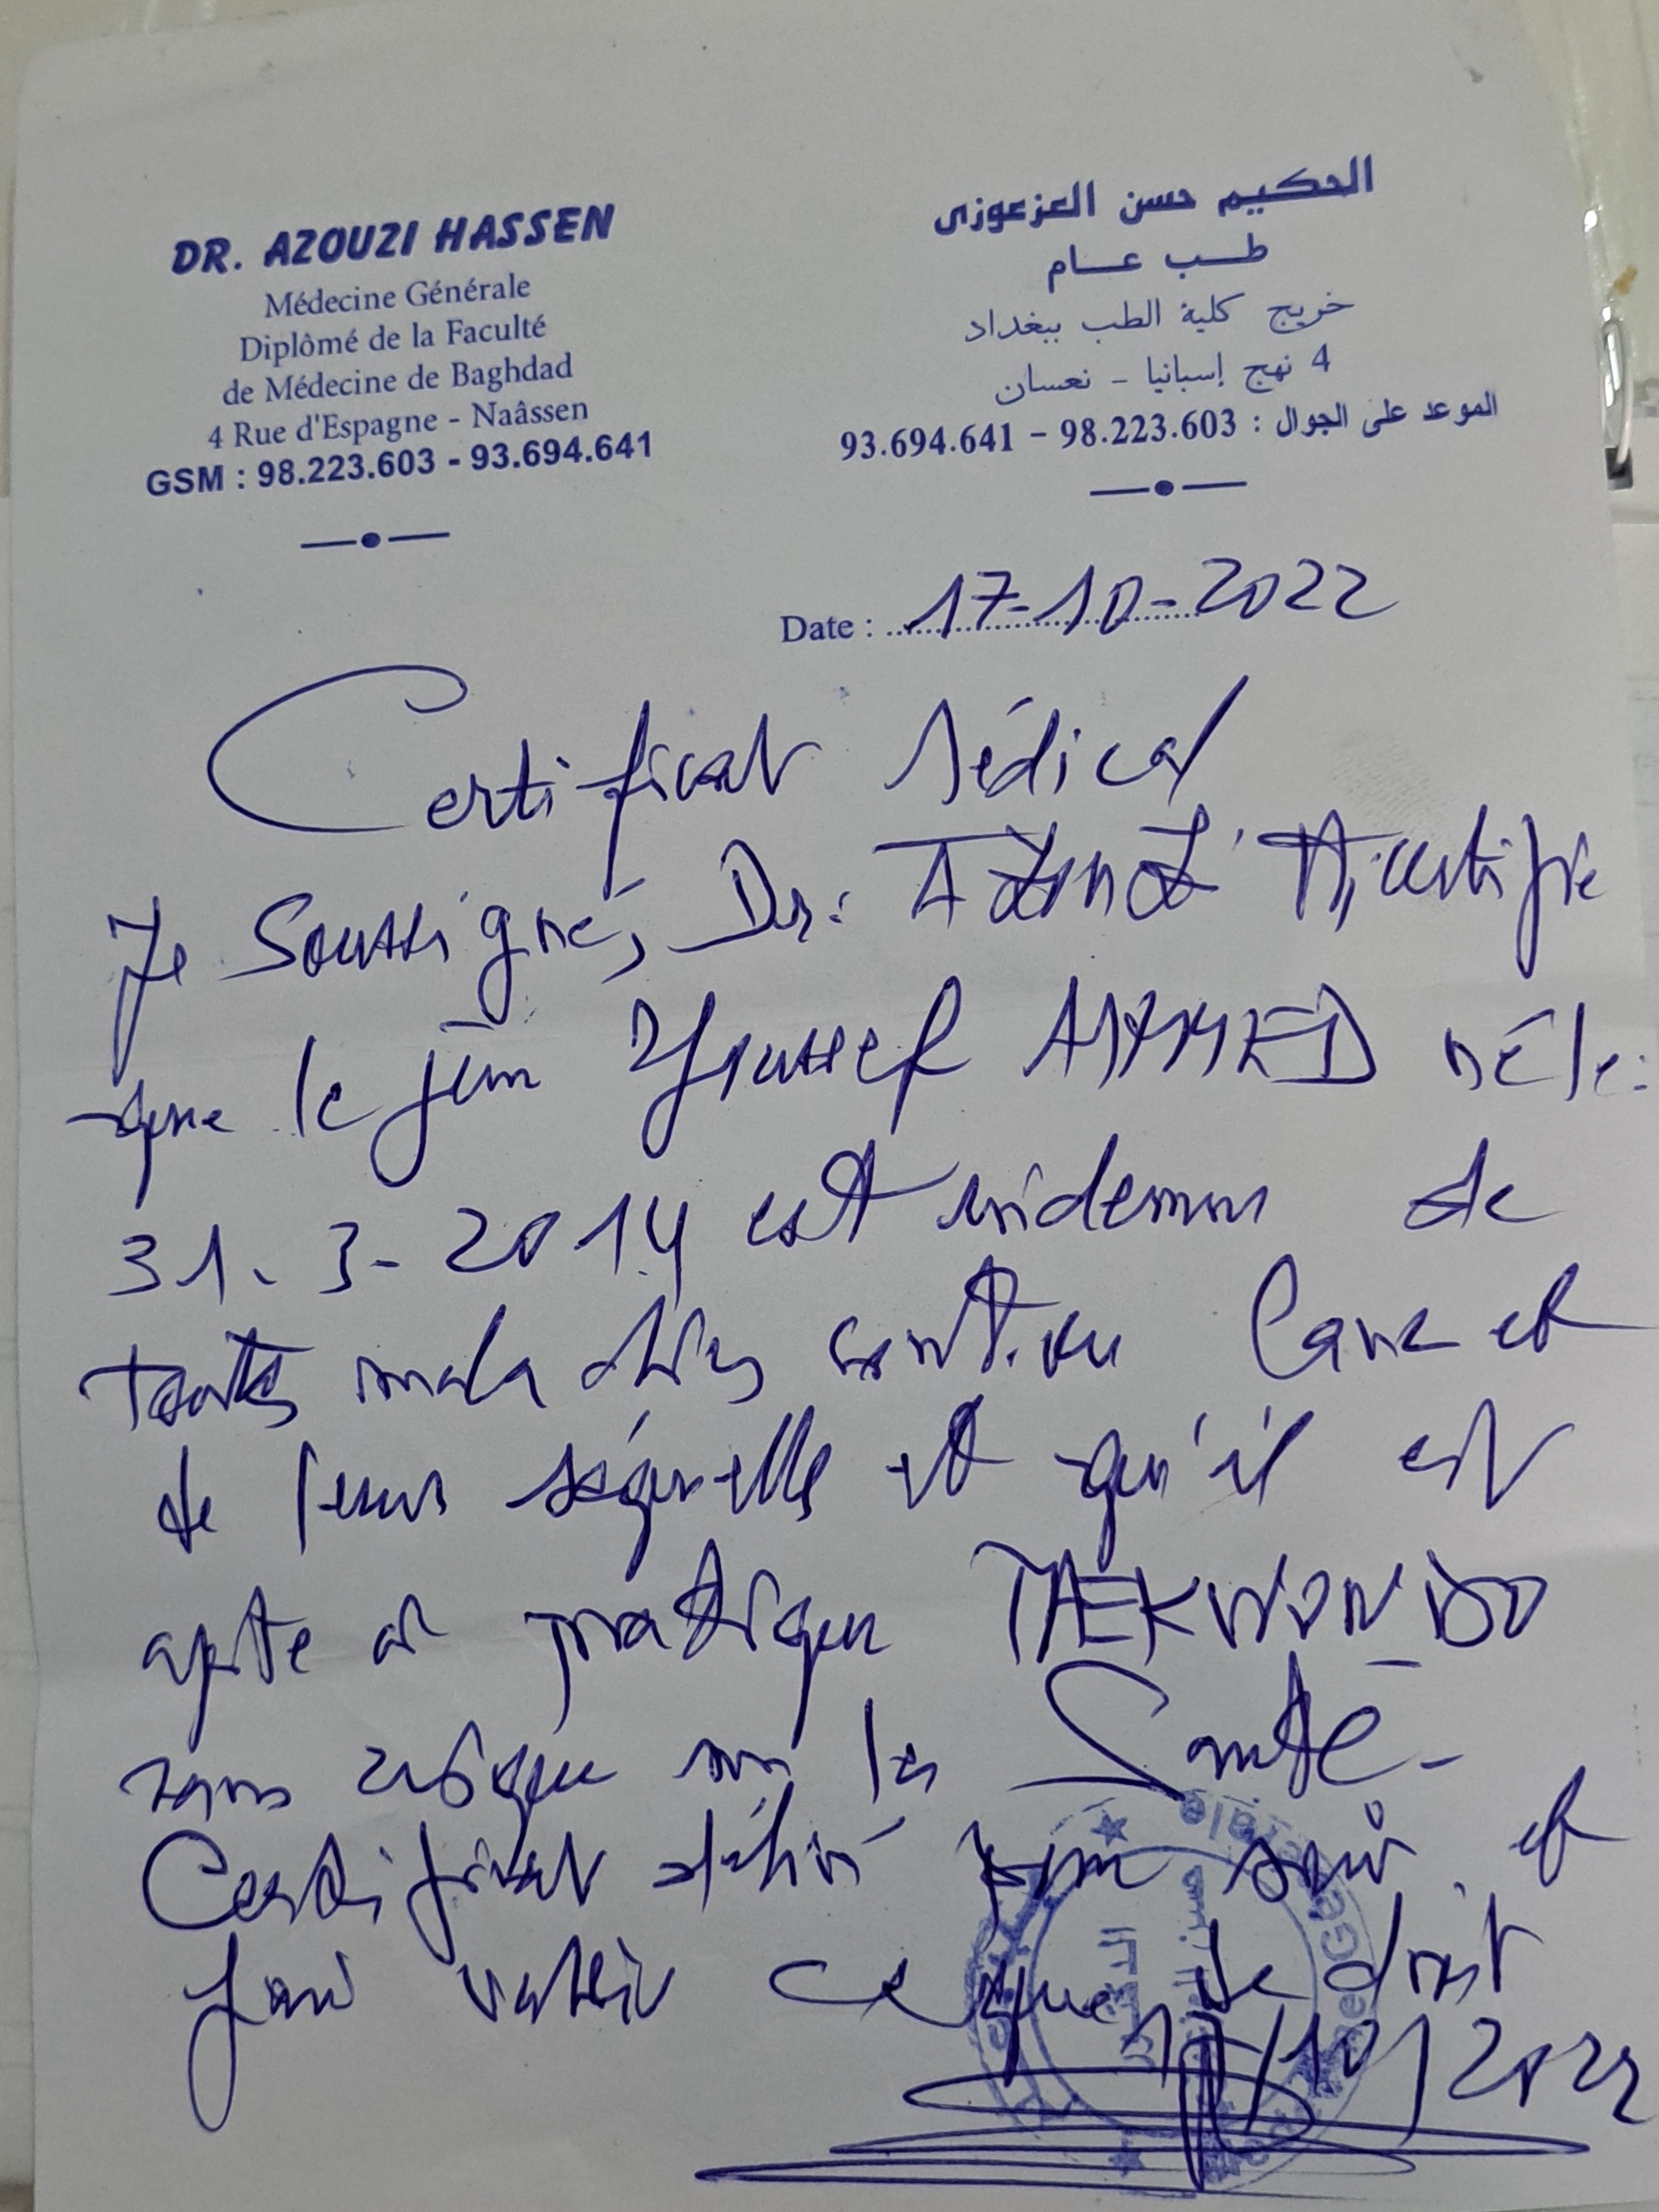 DR. AZOUZI HASSEN
Médecine Générale
Diplômé de la Faculté
de Médecine de Baghdad
4 Rue d'Espagne - Naâssen
GSM : 98.223.603 - 93.694.641
الحكيم حسن العزعوزي
طب عام
خريج كلية الطب ببغداد
4 نهج إسبانيا - نعسان
الموعد على الجوال : 98.223.603 - 93.694.641
Date : 17-10-2022
Certificat Médical
Je Soussigné, Dr: certifie
que le jeune Youssef AHMED né le:
31-3-2014 est indemne de
toutes maladies cardiaque et
de leurs séquelles et qu'il est
apte à pratiquer TAEKWONDO
sans risque sur la Santé-
Certificat délivré pour servir et
faire valoir ce que de droit
17/10/2022